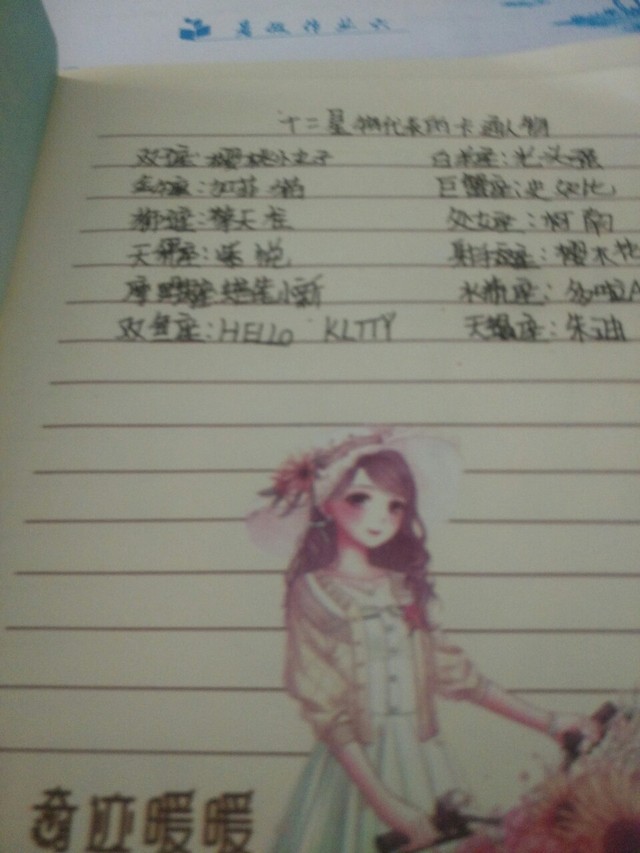 暑假作业六
十二星物代表的卡通人物
双子座:樱桃小丸子 白羊座:光头强
金牛座:加菲猫 巨蟹座:史努比
狮子座:擎天柱 处女座:柯南
天秤座: 射手座:樱木花
摩羯座 蜡笔小新 水瓶座:多啦A
双鱼座:HELLO KLTTY 天蝎座:朱迪
奇迹暖暖